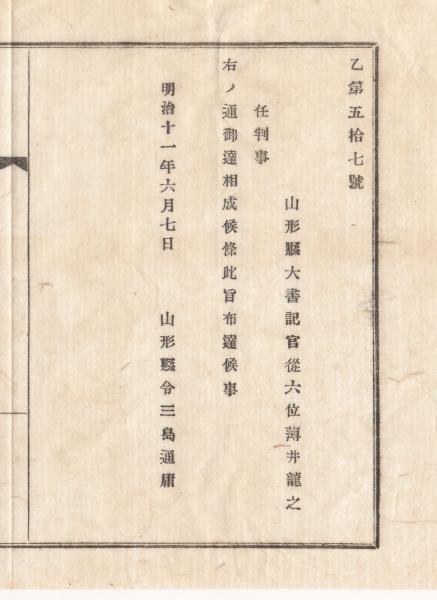 乙第五拾七號
山形縣大書記官從六位薄井龍之
任判事
右ノ通御達相成候條此旨布達候事
明治十一年六月七日　山形縣令三島通庸